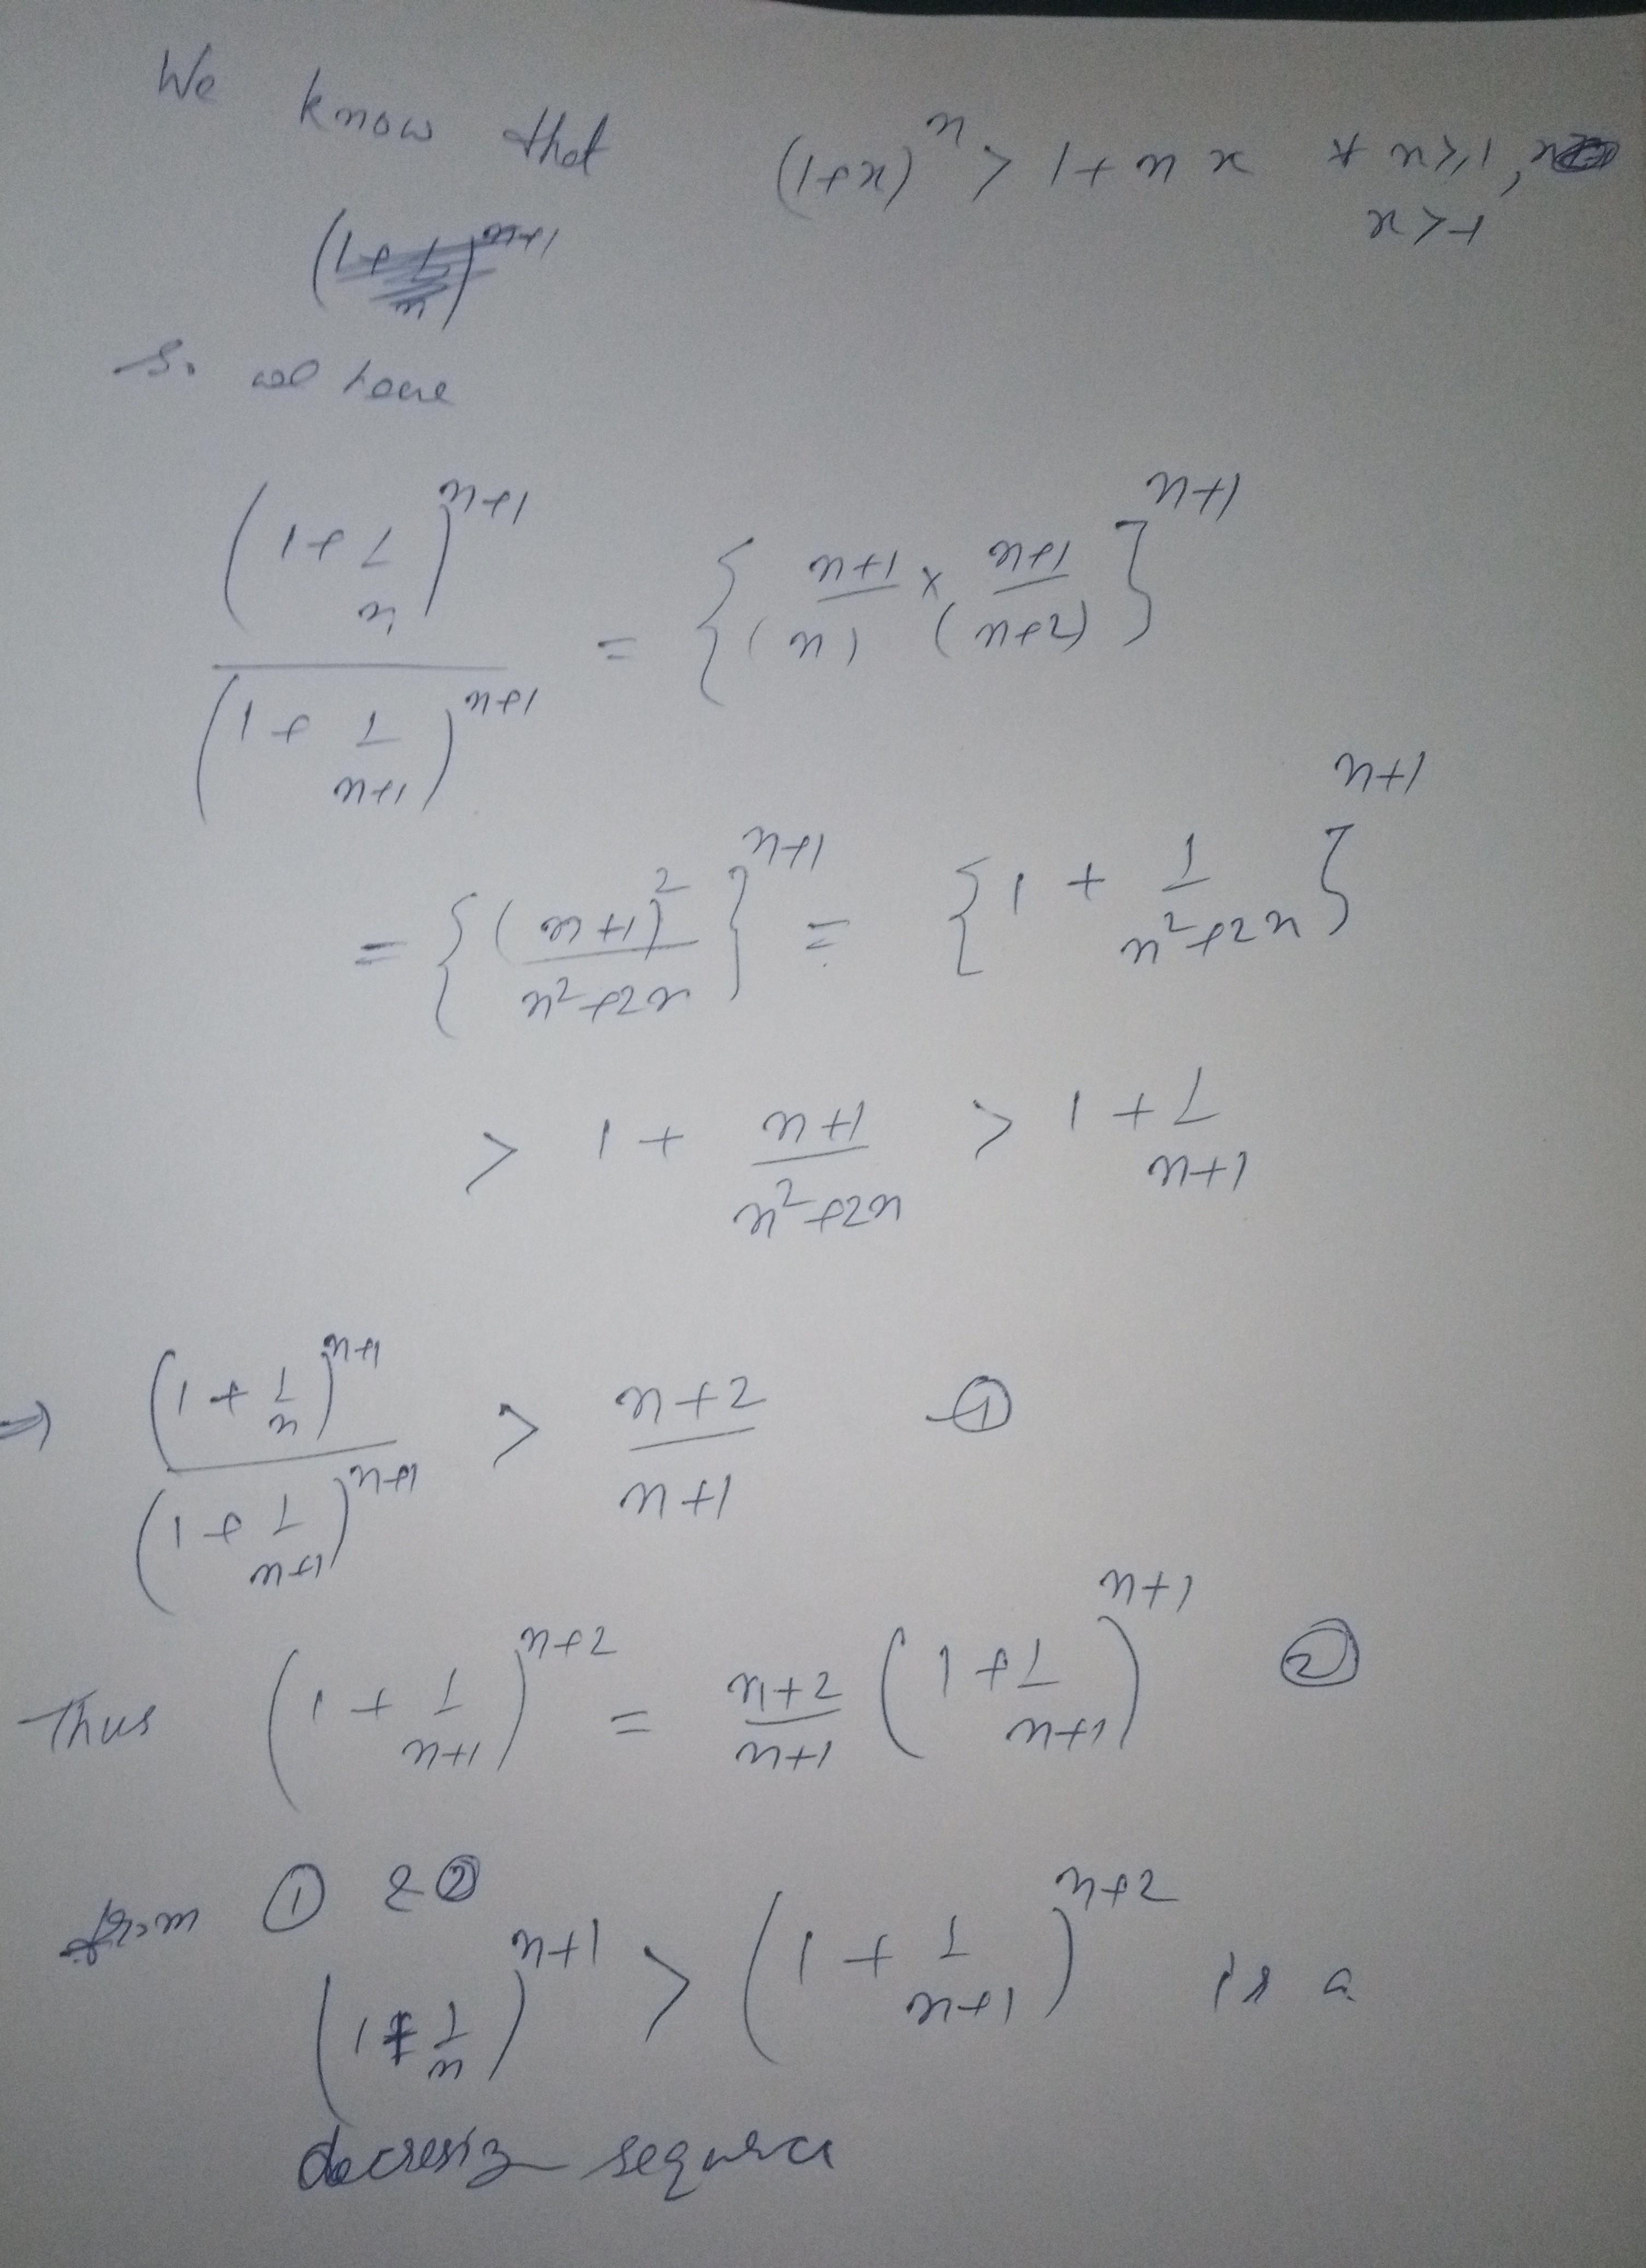 We know that (1+x)^n > 1+nx ∀ n≥1,
x>-1
(1+1/n)^(n+1)
So we have
(1+1/n)^(n+1) / (1+1/(n+1))^(n+1) = { (n+1)/(n) × (n+1)/(n+2) }^(n+1)
= { (n+1)^2 / (n^2+2n) }^(n+1) = { 1 + 1/(n^2+2n) }^(n+1)
> 1 + (n+1)/(n^2+2n) > 1 + 1/(n+1)
⇒ (1+1/n)^(n+1) / (1+1/(n+1))^(n+1) > (n+2)/(n+1) - ①
Thus (1+1/(n+1))^(n+2) = (n+2)/(n+1) (1+1/(n+1))^(n+1) ②
from ① & ②
(1+1/n)^(n+1) > (1+1/(n+1))^(n+2) is a
decresing sequence